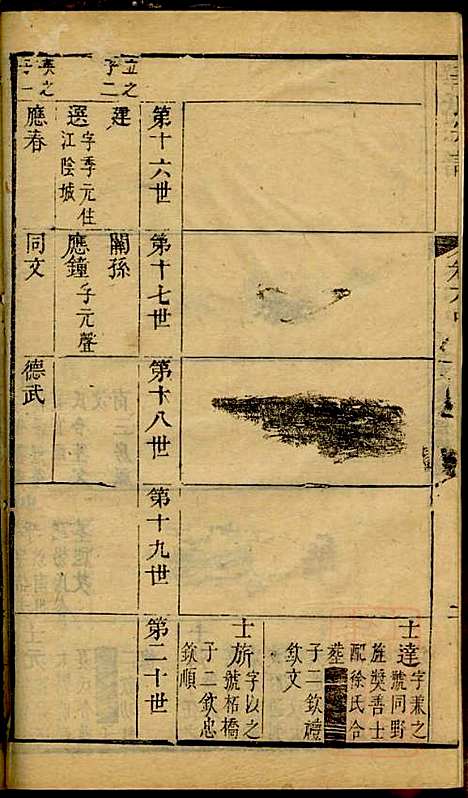 士達字兼之
號同野
旌奬善士
配徐氏合
塟
子二欽禮
欽文
士旂字以之
號柘橋
子二欽忠
欽順
第十六世
第十七世
第十八世
第十九世
第二十世
立之
子二
建
闌孫
選字季元住
江陰城
應鐘字元聲
英之
子一
應春
同文
德武